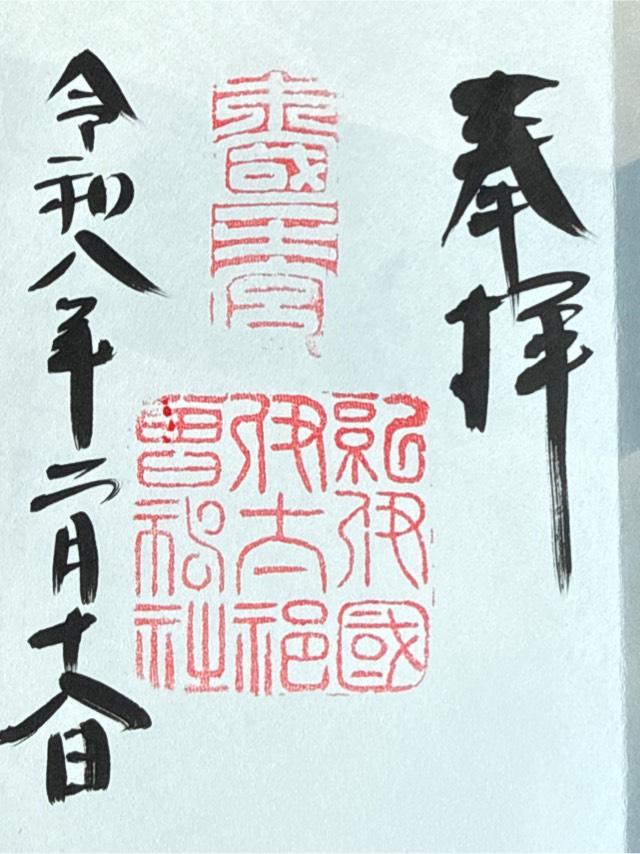 奉拝
紀伊國
伊太祁
曾神社
令和八年二月十八日